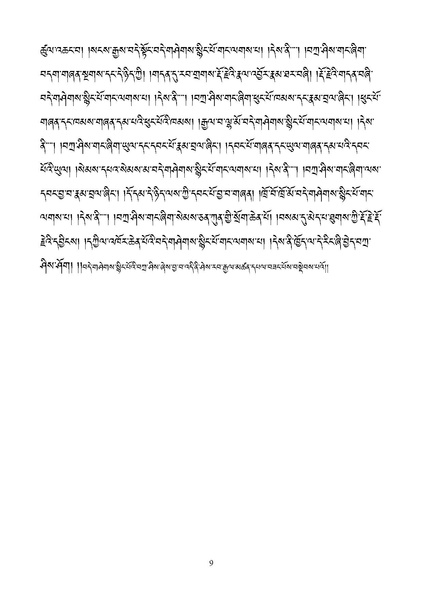 ཚུལ་འཆང་བ། །སངས་རྒྱས་བདེ་སྟོང་བདེ་གཤེགས་སྙིང་པོ་གང་ལགས་པ། །དེས་ནི་༴ །བཀྲ་ཤིས་གང་ཞིག་
བདག་གཞན་སྔགས་དང་དེ་ཉིད་ཀྱི། །གདན་དུ་རབ་གྲགས་རྡོ་རྗེའི་རྣལ་འབྱོར་རྣམ་ཐར་བཞི། །རྡོ་རྗེའི་གདན་བཞི་
བདེ་གཤེགས་སྙིང་པོ་གང་ལགས་པ། །དེས་ནི་༴ །བཀྲ་ཤིས་གང་ཞིག་ཕུང་པོ་ཁམས་དང་རྣམ་བྲལ་ཞིང་། །ཕུང་པོ་
གཞན་དང་ཁམས་གཞན་དམ་པའི་ཕུང་པོའི་ཁམས། །རྒྱལ་བ་ལྷ་མོ་བདེ་གཤེགས་སྙིང་པོ་གང་ལགས་པ། །དེས་
ནི་༴ །བཀྲ་ཤིས་གང་ཞིག་ཡུལ་དང་དབང་པོ་རྣམ་བྲལ་ཞིང་། །དབང་པོ་གཞན་དང་ཡུལ་གཞན་དམ་པའི་དབང་
པོའི་ཡུལ། །སེམས་དཔའ་སེམས་མ་བདེ་གཤེགས་སྙིང་པོ་གང་ལགས་པ། །དེས་ནི་༴ །བཀྲ་ཤིས་གང་ཞིག་ལས་
དབང་བྱ་བ་རྣམ་བྲལ་ཞིང་། །དོ་དམ་དེ་ཉིད་ལས་ཀྱི་དབང་པོ་བྱ་བ་གཞན། །ཁྲོ་བོ་ཁྲོ་མོ་བདེ་གཤེགས་སྙིང་པོ་གང་
ལགས་པ། །དེས་ནི་༴ །བཀྲ་ཤིས་གང་ཞིག་སེམས་ཅན་ཀུན་གྱི་སྲོག་ཆེན་པོ། །བསམ་དུ་མེད་པ་ཐུགས་ཀྱི་རྡོ་རྗེ་རྡོ་
རྗེའི་དབྱིངས། །དཀྱིལ་འཁོར་ཆེན་པོའི་བདེ་གཤེགས་སྙིང་པོ་གང་ལགས་པ། །དེས་ནི་ཁྱོད་ལ་དེ་རིང་ཞི་བྱེད་བཀྲ་
ཤིས་ཤོག། །།བདེ་གཤེགས་སྙིང་པོའི་བཀྲ་ཤིས་ཞེས་བྱ་བ་འདི་ནི་ཤེས་རབ་རྒྱལ་མཚན་དཔལ་བཟང་པོས་བསྡེབས་པའོ།།
9